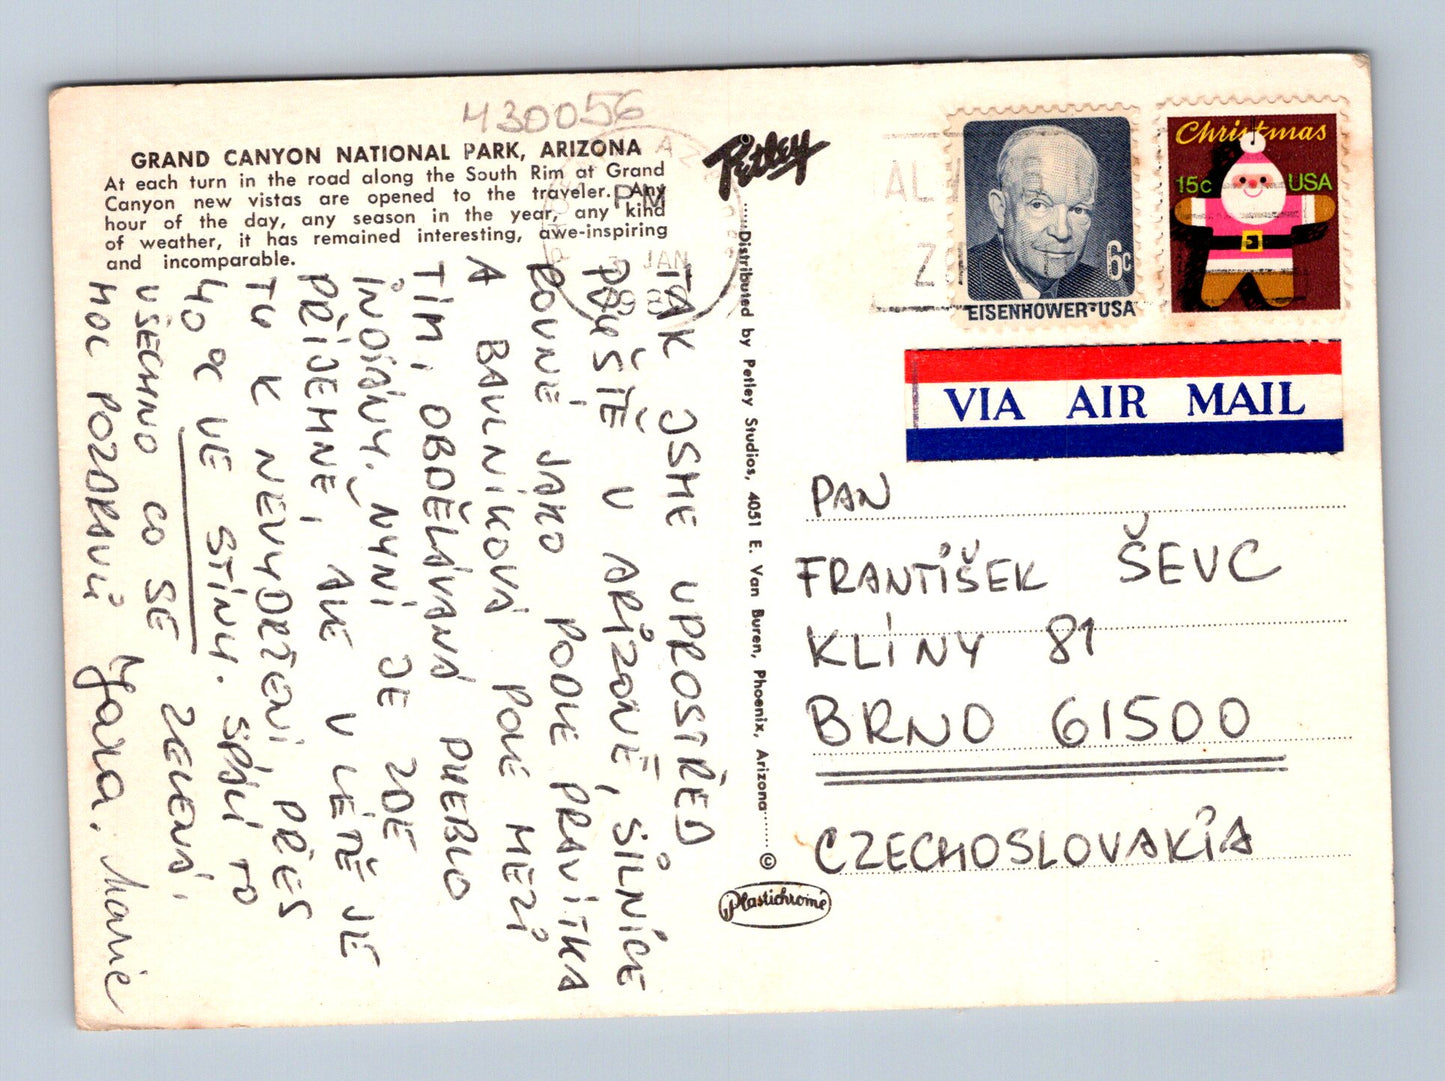 430056
GRAND CANYON NATIONAL PARK, ARIZONA
At each turn in the road along the South Rim at Grand
Canyon new vistas are opened to the traveler. Any
hour of the day, any season in the year, any kind
of weather, it has remained interesting, awe-inspiring
and incomparable.
PM
JAN
Petley
Distributed by Petley Studios, 4051 E. Van Buren, Phoenix, Arizona
©
Plastichrome
EISENHOWER·USA
6c
Christmas
15c USA
VIA AIR MAIL
TAK JSME UPROSTŘED
POUŠTĚ V ARIZONĚ, SILNICE
ROVNÉ JAKO PODLE PRAVÍTKA
A BAVLNÍKOVÁ POLE MEZI
TÍM, OBDĚLÁVANÁ PUEBLO
INDIÁNY. NYNÍ JE ZDE
PŘÍJEMNĚ, ALE V LÉTĚ JE
TU K NEVYDRŽENÍ, PŘES
40 °C VE STÍNU. SPÁLÍ TO
VŠECHNO CO SE ZELENÁ.
MOC POZDRAVŮ Jarka. Marie
PAN
FRANTIŠEK ŠEVC
KLÍNY 81
BRNO 61500
CZECHOSLOVAKIA